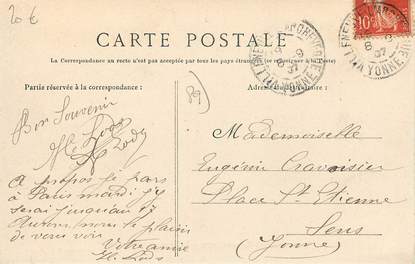 20 €
CARTE POSTALE
La Correspondance au recto n'est pas acceptée par tous les pays étrangers (se renseigner à la Poste)
Partie réservée à la correspondance:
Adresse du Destinataire:
89
Bon Souvenir
A propos je pars
à Paris mardi j'y
serai jusqu'au 17
le plaisir
de vous voir
Votre amie
Mademoiselle
Eugénie Cravoisier
Place St Etienne
Sens
(Yonne)
10
YONNE